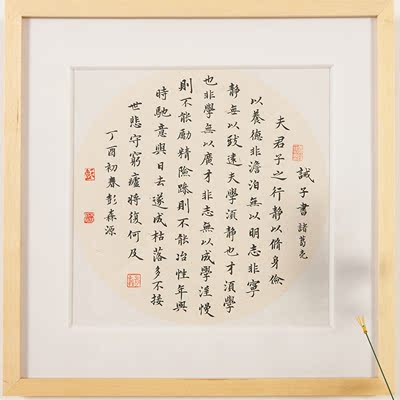 誡子書 諸葛亮
夫君子之行静以脩身儉
以養德非澹泊無以明志非寧
静無以致遠夫學須静也才須學
也非學無以廣才非志無以成學淫慢
則不能勵精險躁則不能冶性年與
時馳意與日去遂成枯落多不接
世悲守窮廬將復何及
丁酉初春彭森源